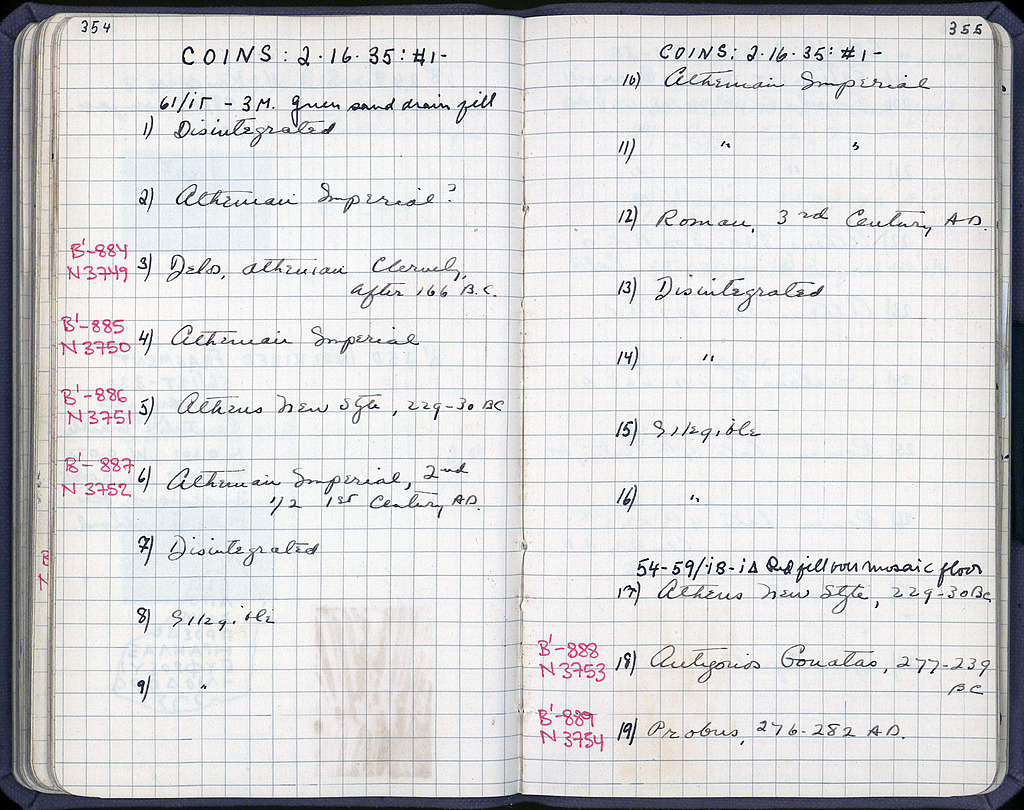 354
COINS: 2·16·35: #1-
61/ΙΓ - 3 M. Green sand drain fill
1) Disintegrated
2) Athenian Imperial?
B'-884
N 3749
3) Delos, Athenian Cleruchy,
after 166 B.C.
B'-885
N 3750
4) Athenian Imperial
B'-886
N 3751
5) Athens New Style, 229-30 BC
B'-887
N 3752
6) Athenian Imperial, 2nd
1/2 1st Century AD.
7) Disintegrated
B
N
8) Illegible
9) "
355
COINS: 2·16·35: #1-
10) Athenian Imperial
11) " "
12) Roman, 3rd Century AD.
13) Disintegrated
14) "
15) Illegible
16) "
54-59/ΙΒ-ΙΔ Red fill over mosaic floor
17) Athens New Style, 229-30 BC
B'-888
N 3753
18) Antigonos Gonatas, 277-239
BC
B'-889
N 3754
19) Probus, 276-282 AD.